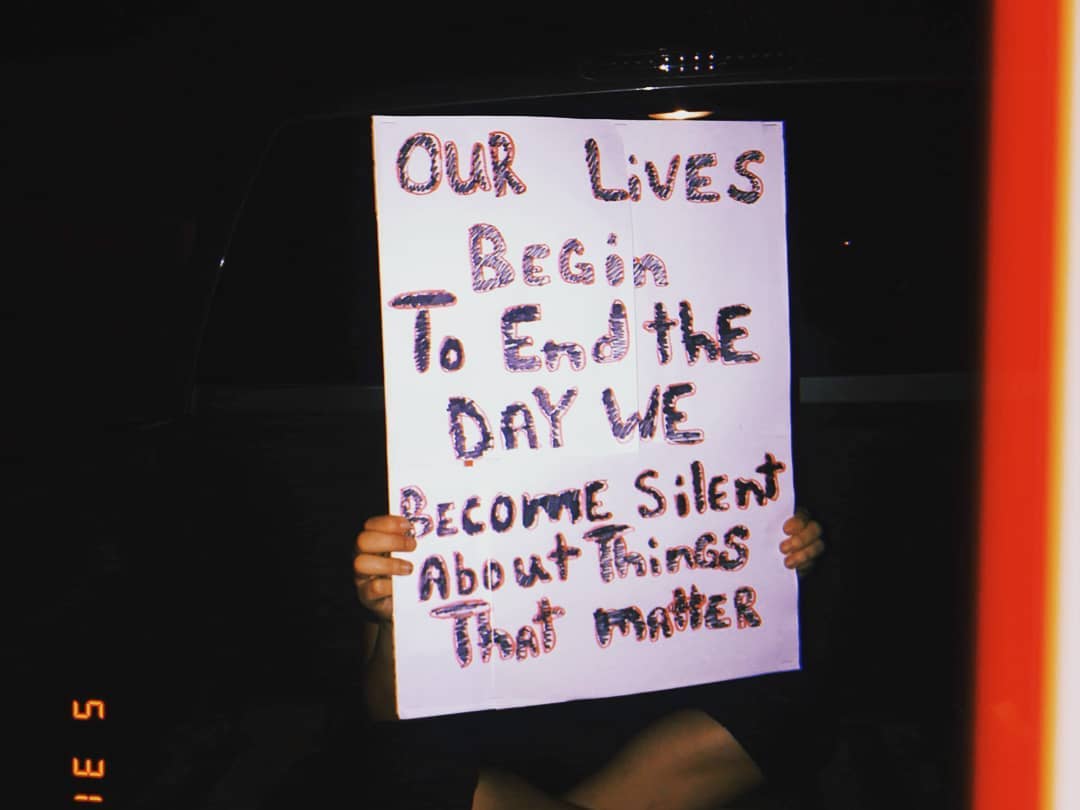 OUR LiVES
BEGin
To End thE
DAY WE
BECOME SilEnt
About ThinGS
ThAt mAttER